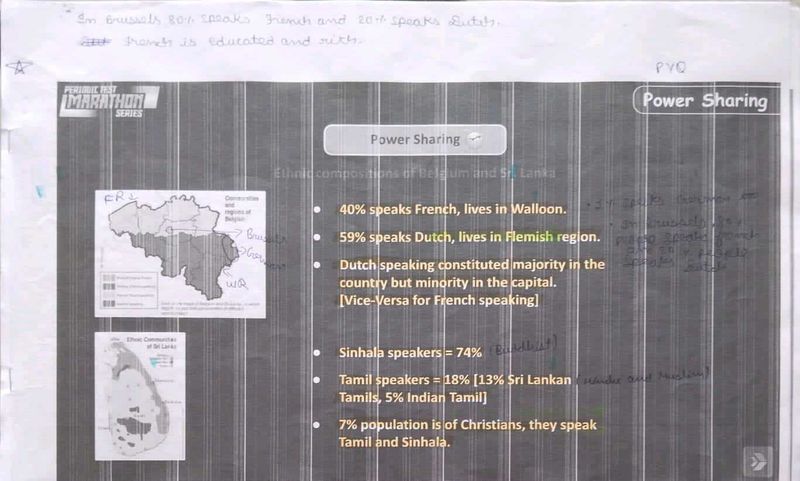 In Brussels 80% speaks French and 20% speaks Dutch.
French is educated and rich.
PYQ
PERIODIC TEST
MARATHON
SERIES
Power Sharing
Power Sharing
Ethnic compositions of Belgium and Sri Lanka
FR
Communities
and
regions of
Belgium
Brussels
German
WR
• 40% speaks French, lives in Walloon.
• 59% speaks Dutch, lives in Flemish region.
• Dutch speaking constituted majority in the
country but minority in the capital.
[Vice-Versa for French speaking]
• 1% speaks German
• In Brussels 80%
people speaks French
Dutch
Ethnic Communities
of Sri Lanka
• Sinhala speakers = 74% (Buddhist)
• Tamil speakers = 18% [13% Sri Lankan (Hindu and Muslim)
Tamils, 5% Indian Tamil]
• 7% population is of Christians, they speak
Tamil and Sinhala.